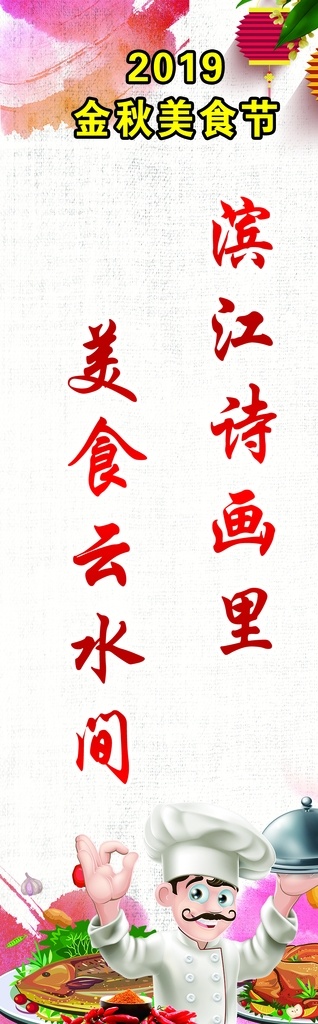 2019
金秋美食节
滨江诗画里
美食云水间